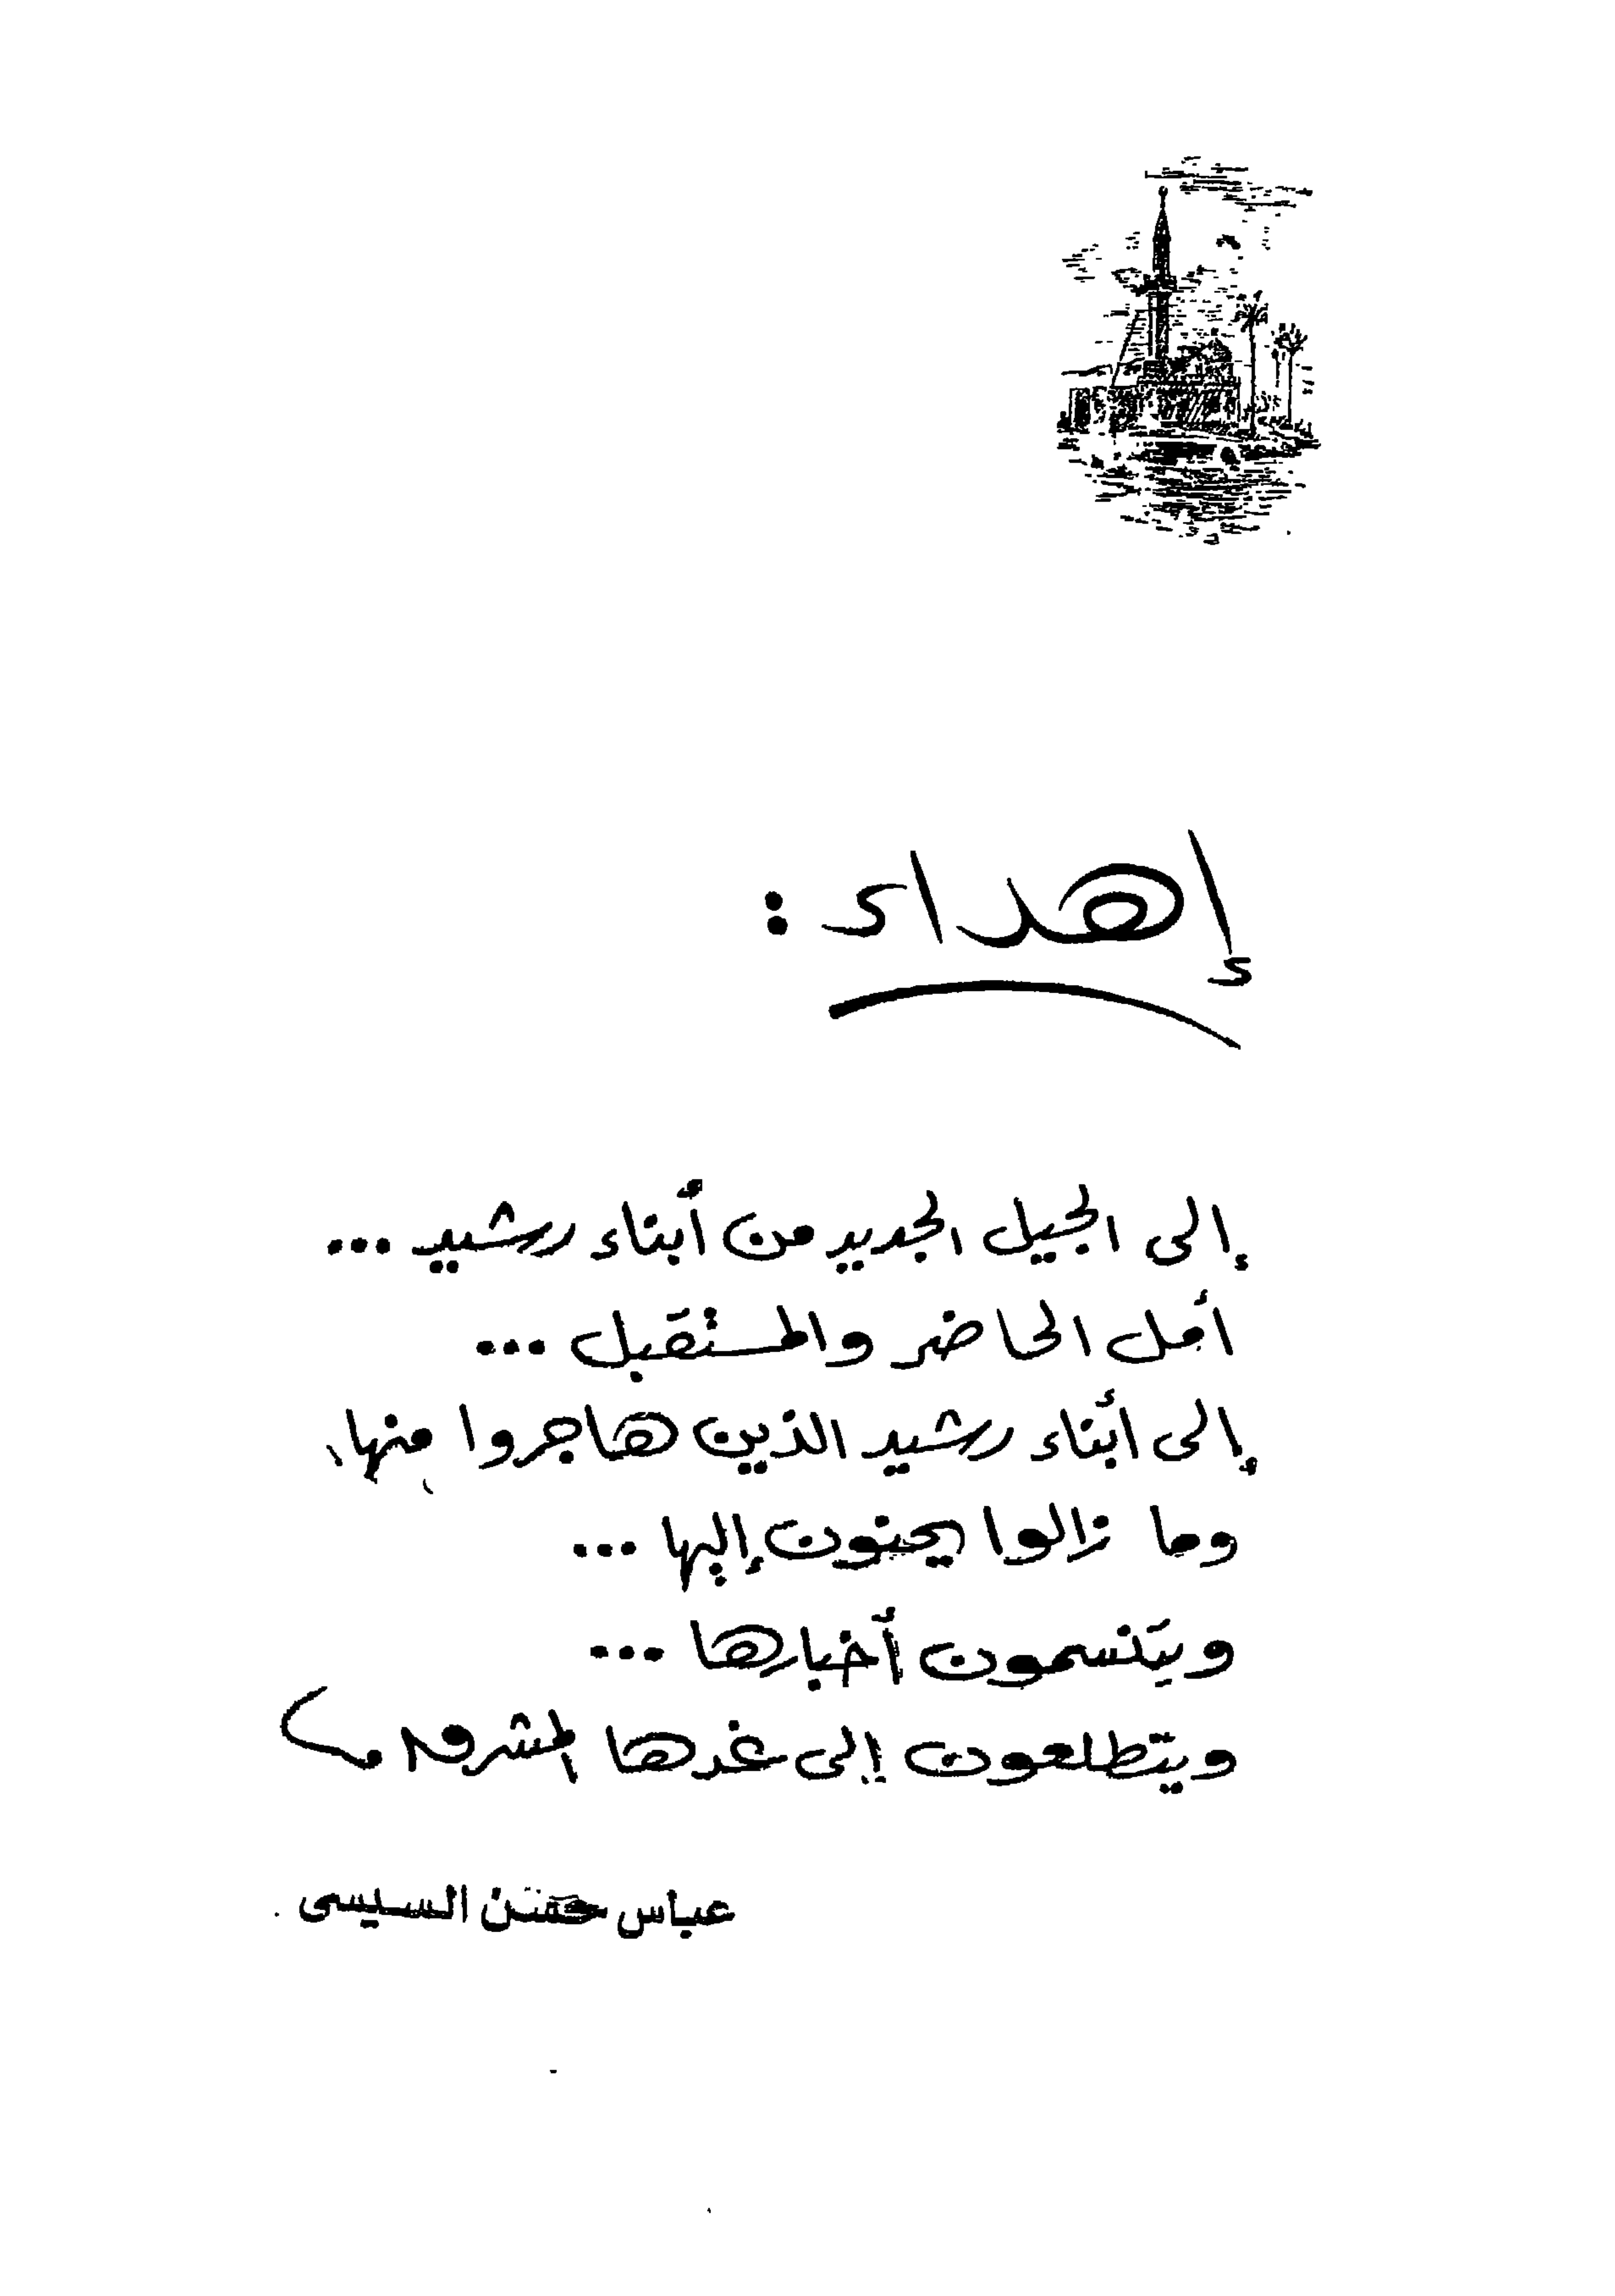 إهداء :
إلى الجيل الجديد من أبناء رشيد ...
أمل الحاضر والمستقبل ...
إلى أبناء رشيد الذين هاجروا منها
وما زالوا يحنون إليها ...
ويتنسمون أخبارها ...
ويتطلعون إلى غدها المشرق
عباس حسن السيسى